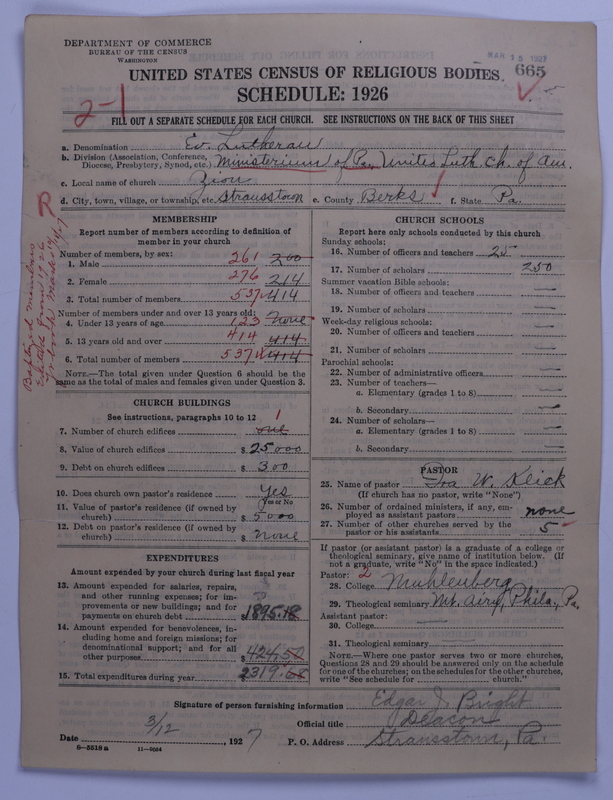 DEPARTMENT OF COMMERCE
BUREAU OF THE CENSUS
WASHINGTON
MAR 15 1927
665
UNITED STATES CENSUS OF RELIGIOUS BODIES
SCHEDULE: 1926
2-1
FILL OUT A SEPARATE SCHEDULE FOR EACH CHURCH. SEE INSTRUCTIONS ON THE BACK OF THIS SHEET
a. Denomination Ev. Lutheran
b. Division (Association, Conference, Diocese, Presbytery, Synod, etc.) Ministerium of Pa., United Luth. Ch. of Am.
c. Local name of church Zion
d. City, town, village, or township, etc. Strausstown e. County Berks f. State Pa.
Baptized Members
MEMBERSHIP
Report number of members according to definition of
member in your church
Number of members, by sex:
1. Male 261 200
2. Female 276 214
3. Total number of members 537 414
Number of members under and over 13 years old:
4. Under 13 years of age 123 none
5. 13 years old and over 414 414
6. Total number of members 537 414
NOTE.—The total given under Question 6 should be the
same as the total of males and females given under Question 3.
CHURCH BUILDINGS
See instructions, paragraphs 10 to 12
7. Number of church edifices one 1
8. Value of church edifices $ 25000
9. Debt on church edifices $ 300
10. Does church own pastor's residence Yes
Yes or No
11. Value of pastor's residence (if owned by
church) $ 5000
12. Debt on pastor's residence (if owned by
church) $ none
EXPENDITURES
Amount expended by your church during last fiscal year
13. Amount expended for salaries, repairs,
and other running expenses; for im-
provements or new buildings; and for
payments on church debt $ 1895.18
14. Amount expended for benevolences, in-
cluding home and foreign missions; for
denominational support; and for all
other purposes $ 424.50
15. Total expenditures during year $ 2319.68
CHURCH SCHOOLS
Report here only schools conducted by this church
Sunday schools:
16. Number of officers and teachers 25
17. Number of scholars 250
Summer vacation Bible schools:
18. Number of officers and teachers —
19. Number of scholars —
Week-day religious schools:
20. Number of officers and teachers —
21. Number of scholars —
Parochial schools:
22. Number of administrative officers —
23. Number of teachers—
a. Elementary (grades 1 to 8) —
b. Secondary —
24. Number of scholars—
a. Elementary (grades 1 to 8) —
b. Secondary —
PASTOR
25. Name of pastor Ira W. Klick
(If church has no pastor, write "None")
26. Number of ordained ministers, if any, em-
ployed as assistant pastors none
27. Number of other churches served by the
pastor or his assistants 5
If pastor (or assistant pastor) is a graduate of a college or
theological seminary, give name of institution below. (If
not a graduate, write "No" in the space indicated.)
Pastor: 2
28. College Muhlenberg
29. Theological seminary Mt. Airy, Phila., Pa.
Assistant pastor:
30. College —
31. Theological seminary —
NOTE.—Where one pastor serves two or more churches,
Questions 28 and 29 should be answered only on the schedule
for one of the churches; on the schedules for the other churches,
write "See schedule for church."
Signature of person furnishing information Edgar J. Bright
Official title Deacon
Date 3/12, 1927 P. O. Address Strausstown, Pa.
6—5518a 11—9084